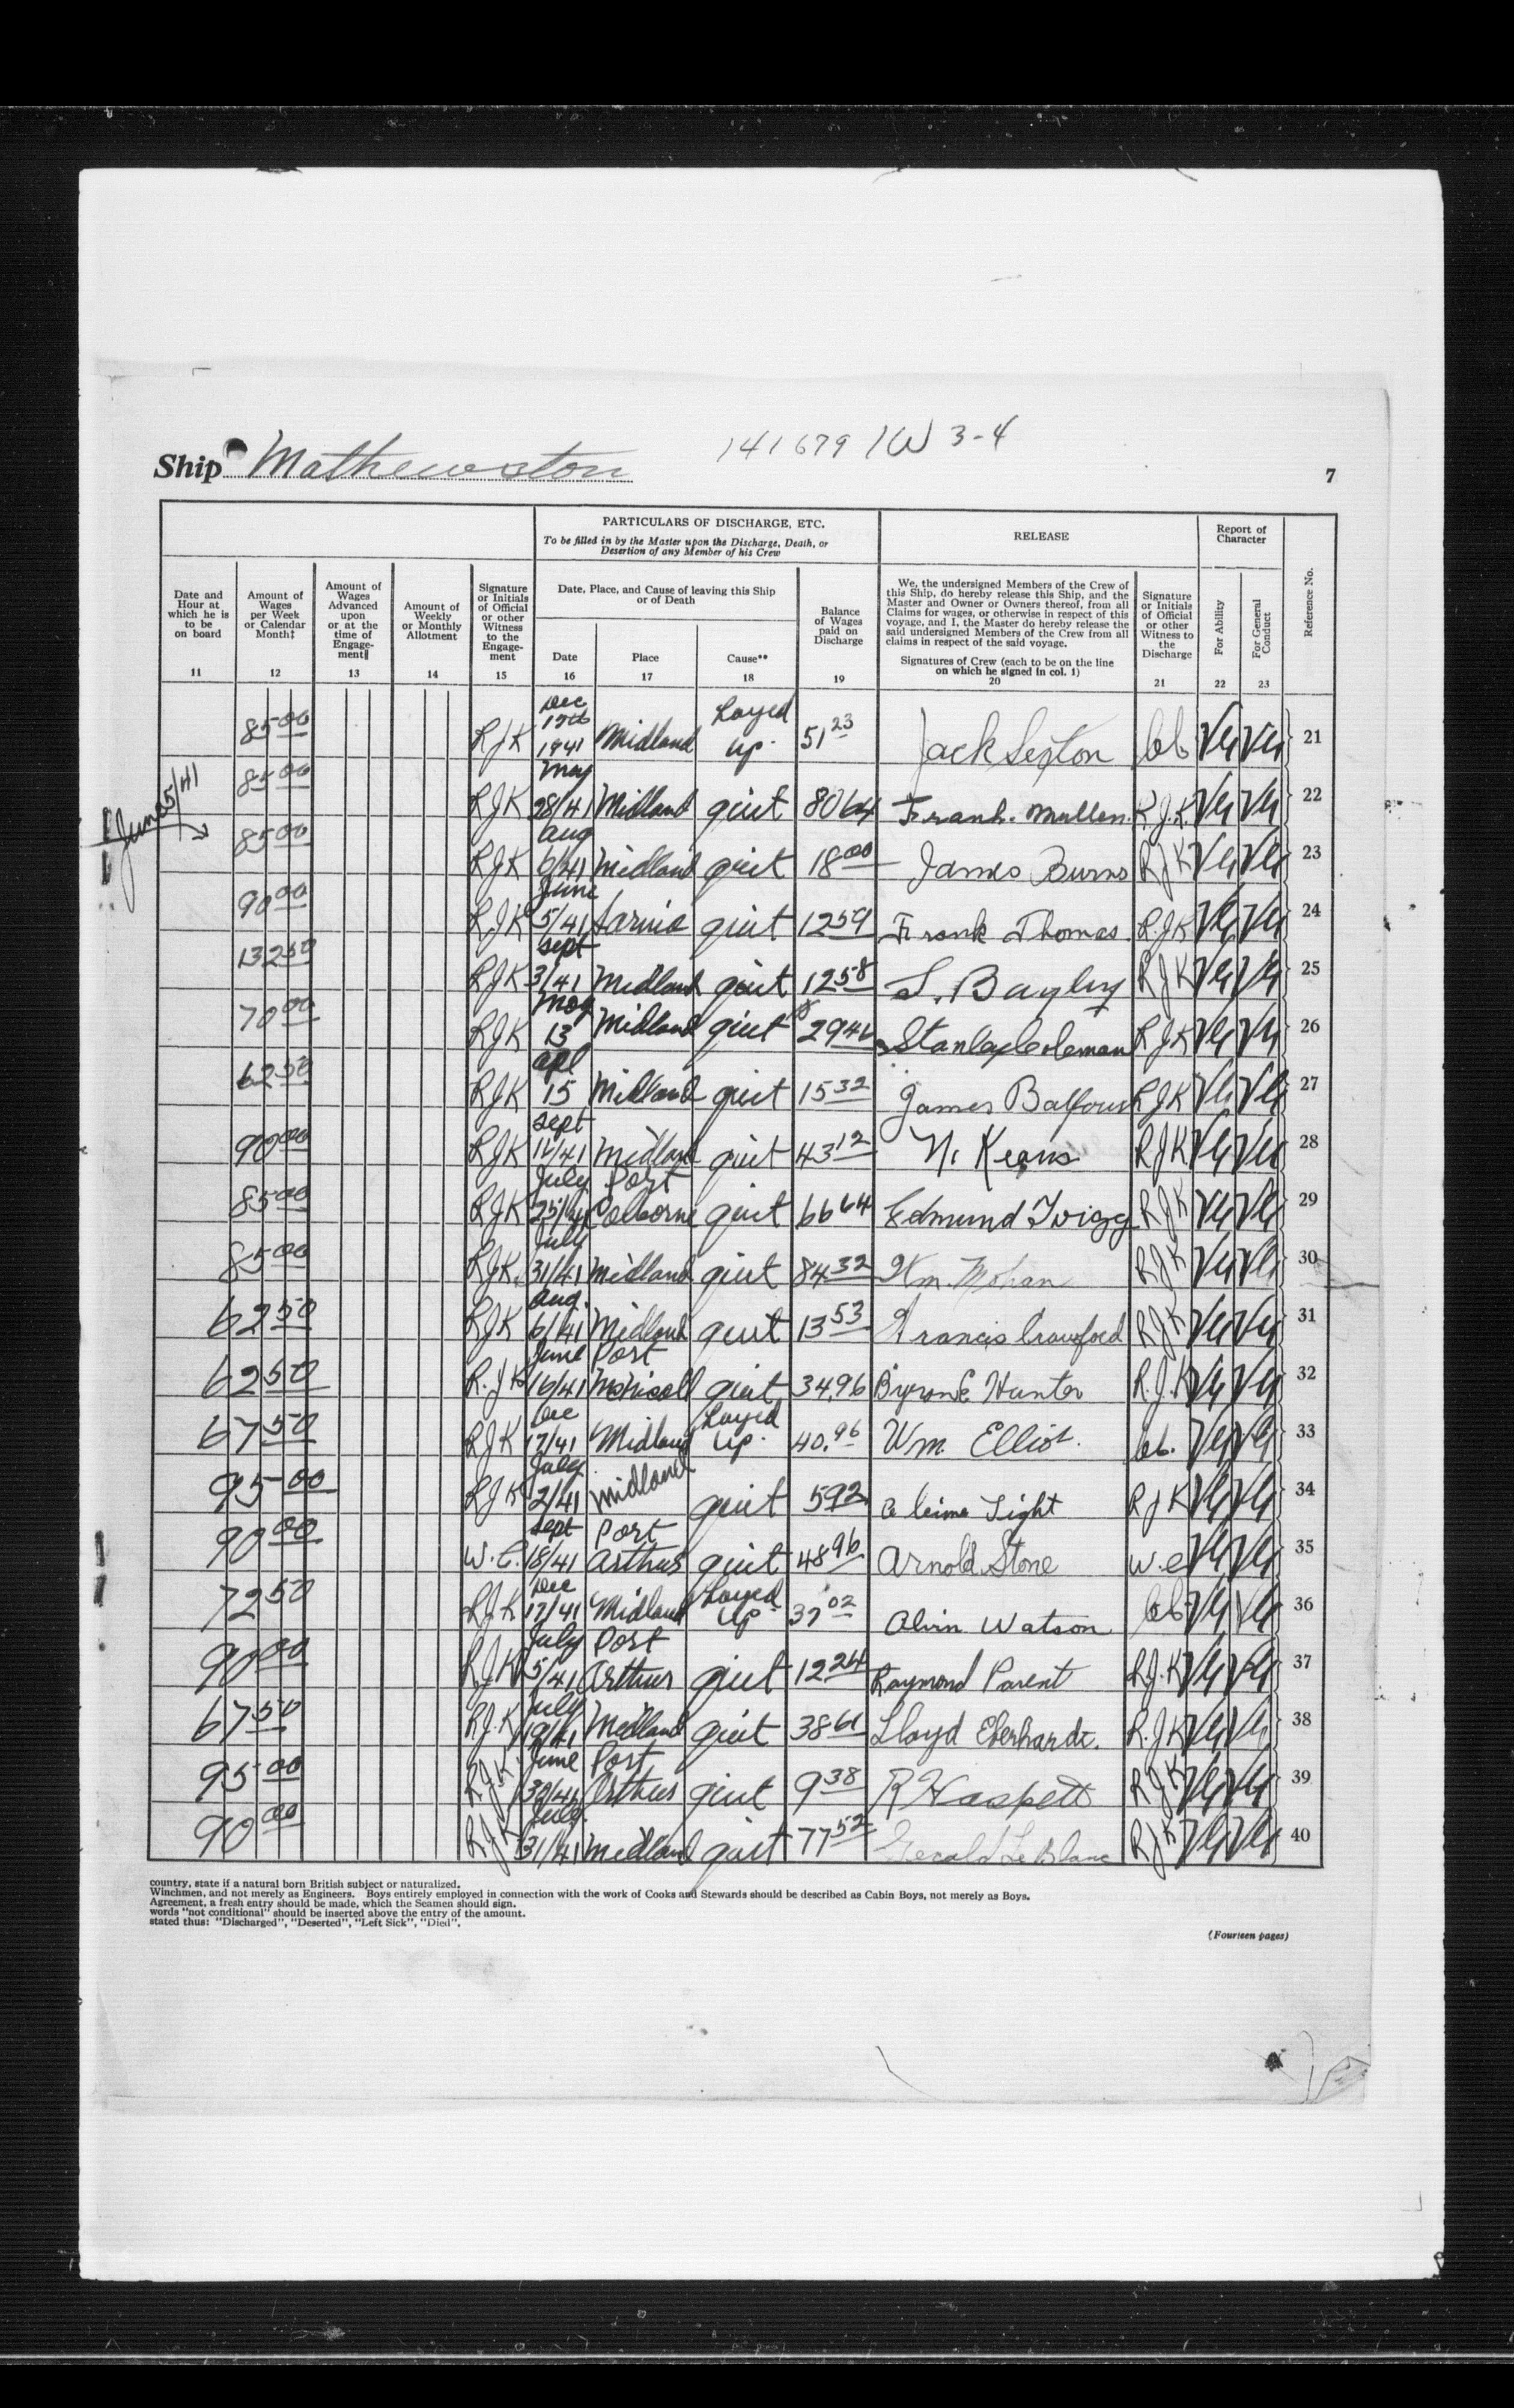 141679 /W 3-4
Ship Mathewston
7
PARTICULARS OF DISCHARGE, ETC.
To be filled in by the Master upon the Discharge, Death, or
Desertion of any Member of his Crew
RELEASE
Report of
Character
Date and
Hour at
which he is
to be
on board
11
Amount of
Wages
per Week
or Calendar
Month‡
12
Amount of
Wages
Advanced
upon
or at the
time of
Engage-
ment‖
13
Amount of
Weekly
or Monthly
Allotment
14
Signature
or Initials
of Official
or other
Witness
to the
Engage-
ment
15
Date, Place, and Cause of leaving this Ship
or of Death
Date
16
Place
17
Cause**
18
Balance
of Wages
paid on
Discharge
19
We, the undersigned Members of the Crew of
this Ship, do hereby release this Ship, and the
Master and Owner or Owners thereof, from all
Claims for wages, or otherwise in respect of this
voyage, and I, the Master do hereby release the
said undersigned Members of the Crew from all
claims in respect of the said voyage.
Signatures of Crew (each to be on the line
on which he signed in col. 1)
20
Signature
or Initials
of Official
or other
Witness to
the
Discharge
21
For Ability
22
For General
Conduct
23
Reference No.
85 00 RJK Dec 17th 1941 Midland Layed up. 51 23 Jack Sexton VG VG 21
85 00 RJK May 28/41 Midland quit 80 64 Frank. Mullen. R.J.K. VG VG 22
June 5/41
85 00 RJK Aug 6/41 Midland quit 18 00 James Burns RJK VG VG 23
90 00 RJK June 5/41 Sarnia quit 12 59 Frank Thomas. R.JK VG VG 24
132 50 RJK Sept 3/41 Midland quit 12 58 S. Bayley RJK VG VG 25
70 00 RJK May 13 Midland quit $ 29 46 Stanley Coleman RJK VG VG 26
62 50 RJK Apl 15 Midland quit 15 32 James Balfour RJK VG VG 27
90 00 RJK Sept Midland quit 43 12 N. Keans RJK VG VG 28
85 00 RJK July 25/41 Port Colborne quit 66 64 Edmund Twigg RJK VG VG 29
85 00 RJK. July 31/41 Midland quit 84 32 Wm. Mohan RJK VG VG 30
62 50 RJK Aug. 6/41 Midland quit 13 53 Francis Crawford RJK VG VG 31
62 50 R.JK June 16/41 Port McNicoll quit 34.96 Byron E Hunter R.J.K VG VG 32
67 50 RJK Dec 17/41 Midland Layed up. 40.96 Wm. Elliot. VG VG 33
95 00 RJK July 2/41 Midland quit 5 92 Tight RJK VG VG 34
90 00 W.E. Sept 18/41 Port Arthur quit 48 96 Arnold Stone W.E VG VG 35
72 50 RJK Dec 17/41 Midland Layed up 37 02 Alvin Watson VG VG 36
90 00 RJK July 5/41 Port Arthur quit 12 24 Raymond Parent RJ.K VG VG 37
67 50 RJ.K July 19/41 Midland quit 38 61 Lloyd Eberhardt. R.JK VG VG 38
95 00 RJK June 30/41 Port Arthur quit 9 38 R Haspett RJK VG VG 39
90 00 RJK July. 31/41 Midland quit 77 52 Gerald LeBlanc RJK VG VG 40
country, state if a natural born British subject or naturalized.
Winchmen, and not merely as Engineers. Boys entirely employed in connection with the work of Cooks and Stewards should be described as Cabin Boys, not merely as Boys.
Agreement, a fresh entry should be made, which the Seamen should sign.
words "not conditional" should be inserted above the entry of the amount.
stated thus: "Discharged", "Deserted", "Left Sick", "Died".
(Fourteen pages)